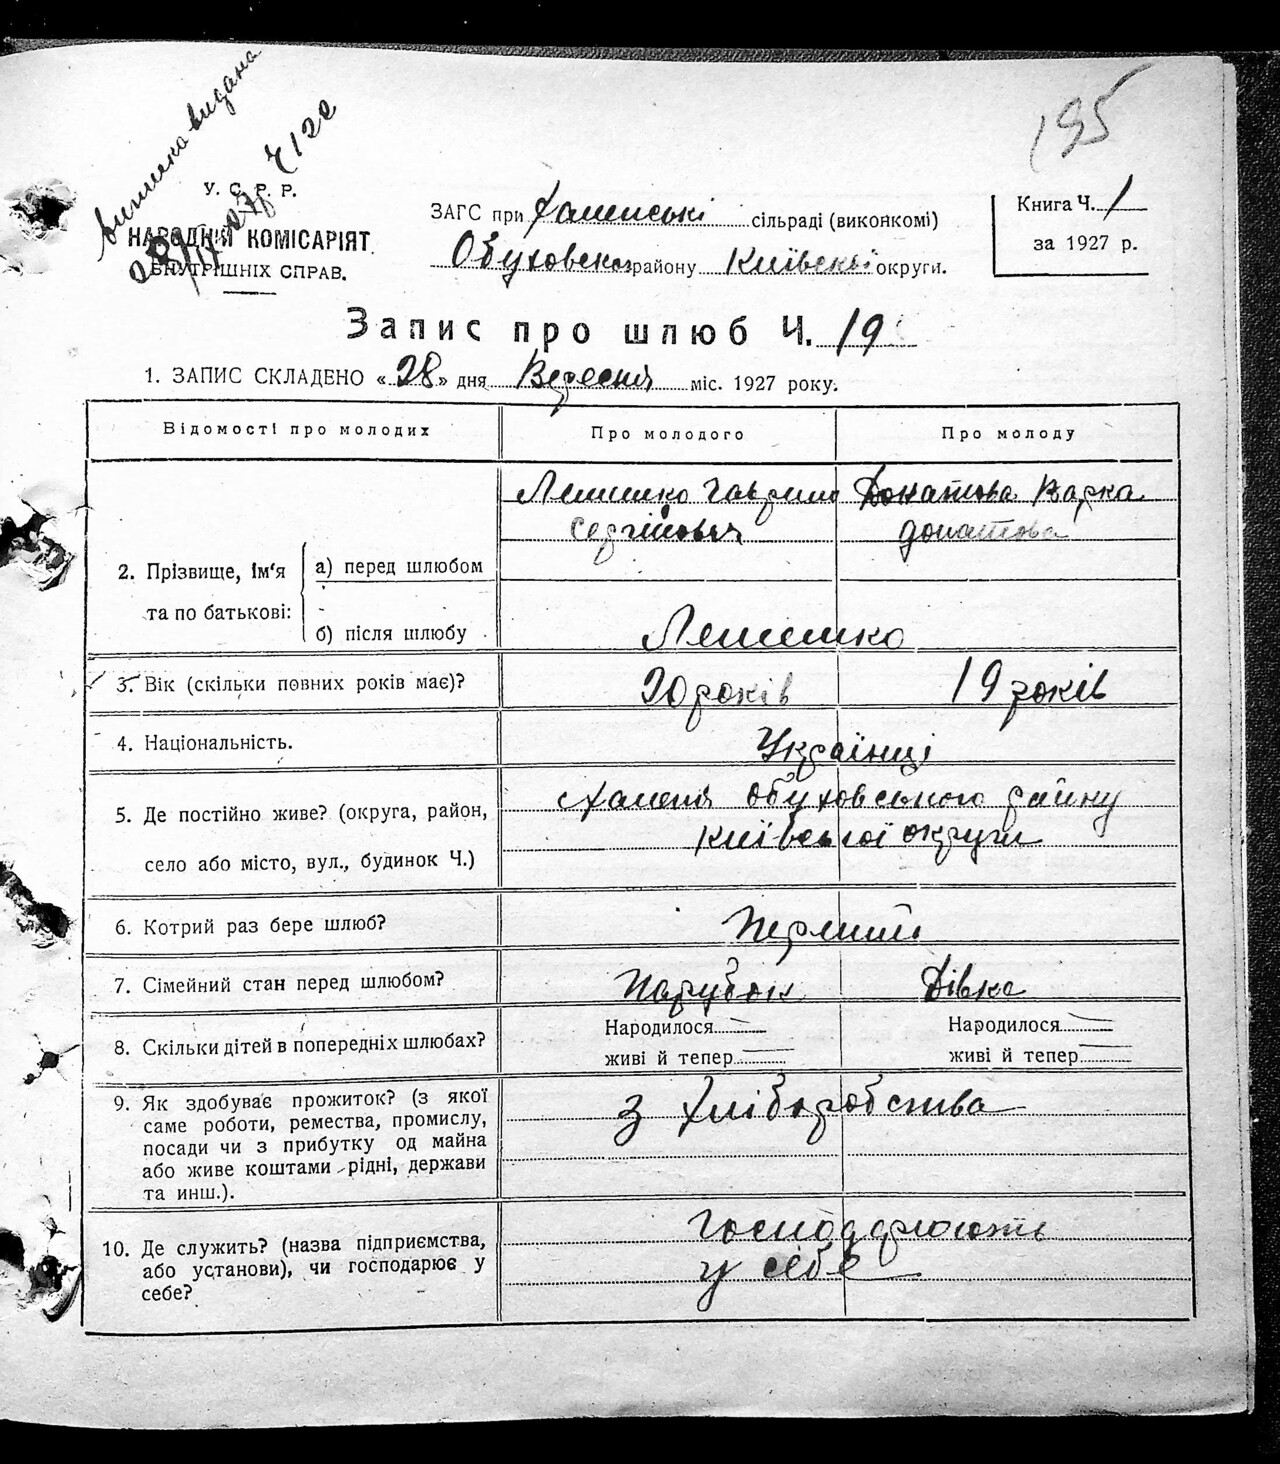 195
виписка видана
Ч 120
У. С. Р. Р.
НАРОДНІЙ КОМІСАРІЯТ
ВНУТРІШНІХ СПРАВ.
ЗАГС при Халепській сільраді (виконкомі)
Обуховском району Київської округи.
Книга Ч. 1
за 1927 р.
Запис про шлюб Ч. 19
1. ЗАПИС СКЛАДЕНО «28» дня Вересня міс. 1927 року.
Відомості про молодих Про молодого Про молоду
Лемешко Гаврило Донатова Варка
Сергійович Донатова
2. Прізвище, ім'я та по батькові:
а) перед шлюбом
б) після шлюбу Лемешко
3. Вік (скільки повних років має)? 20 років 19 років
4. Національність. Українці
5. Де постійно живе? (округа, район, с Халепя Обуховського району
село або місто, вул., будинок Ч.) Київської округи
6. Котрий раз бере шлюб? Перший
7. Сімейний стан перед шлюбом? Парубок Дівка
8. Скільки дітей в попередніх шлюбах?
Народилося Народилося
живі й тепер живі й тепер
9. Як здобуває прожиток? (з якої з хліборобства
саме роботи, ремества, промислу,
посади чи з прибутку од майна
або живе коштами рідні, держави
та инш.).
10. Де служить? (назва підприємства, Господарюють
або установи), чи господарює у у себе
себе?